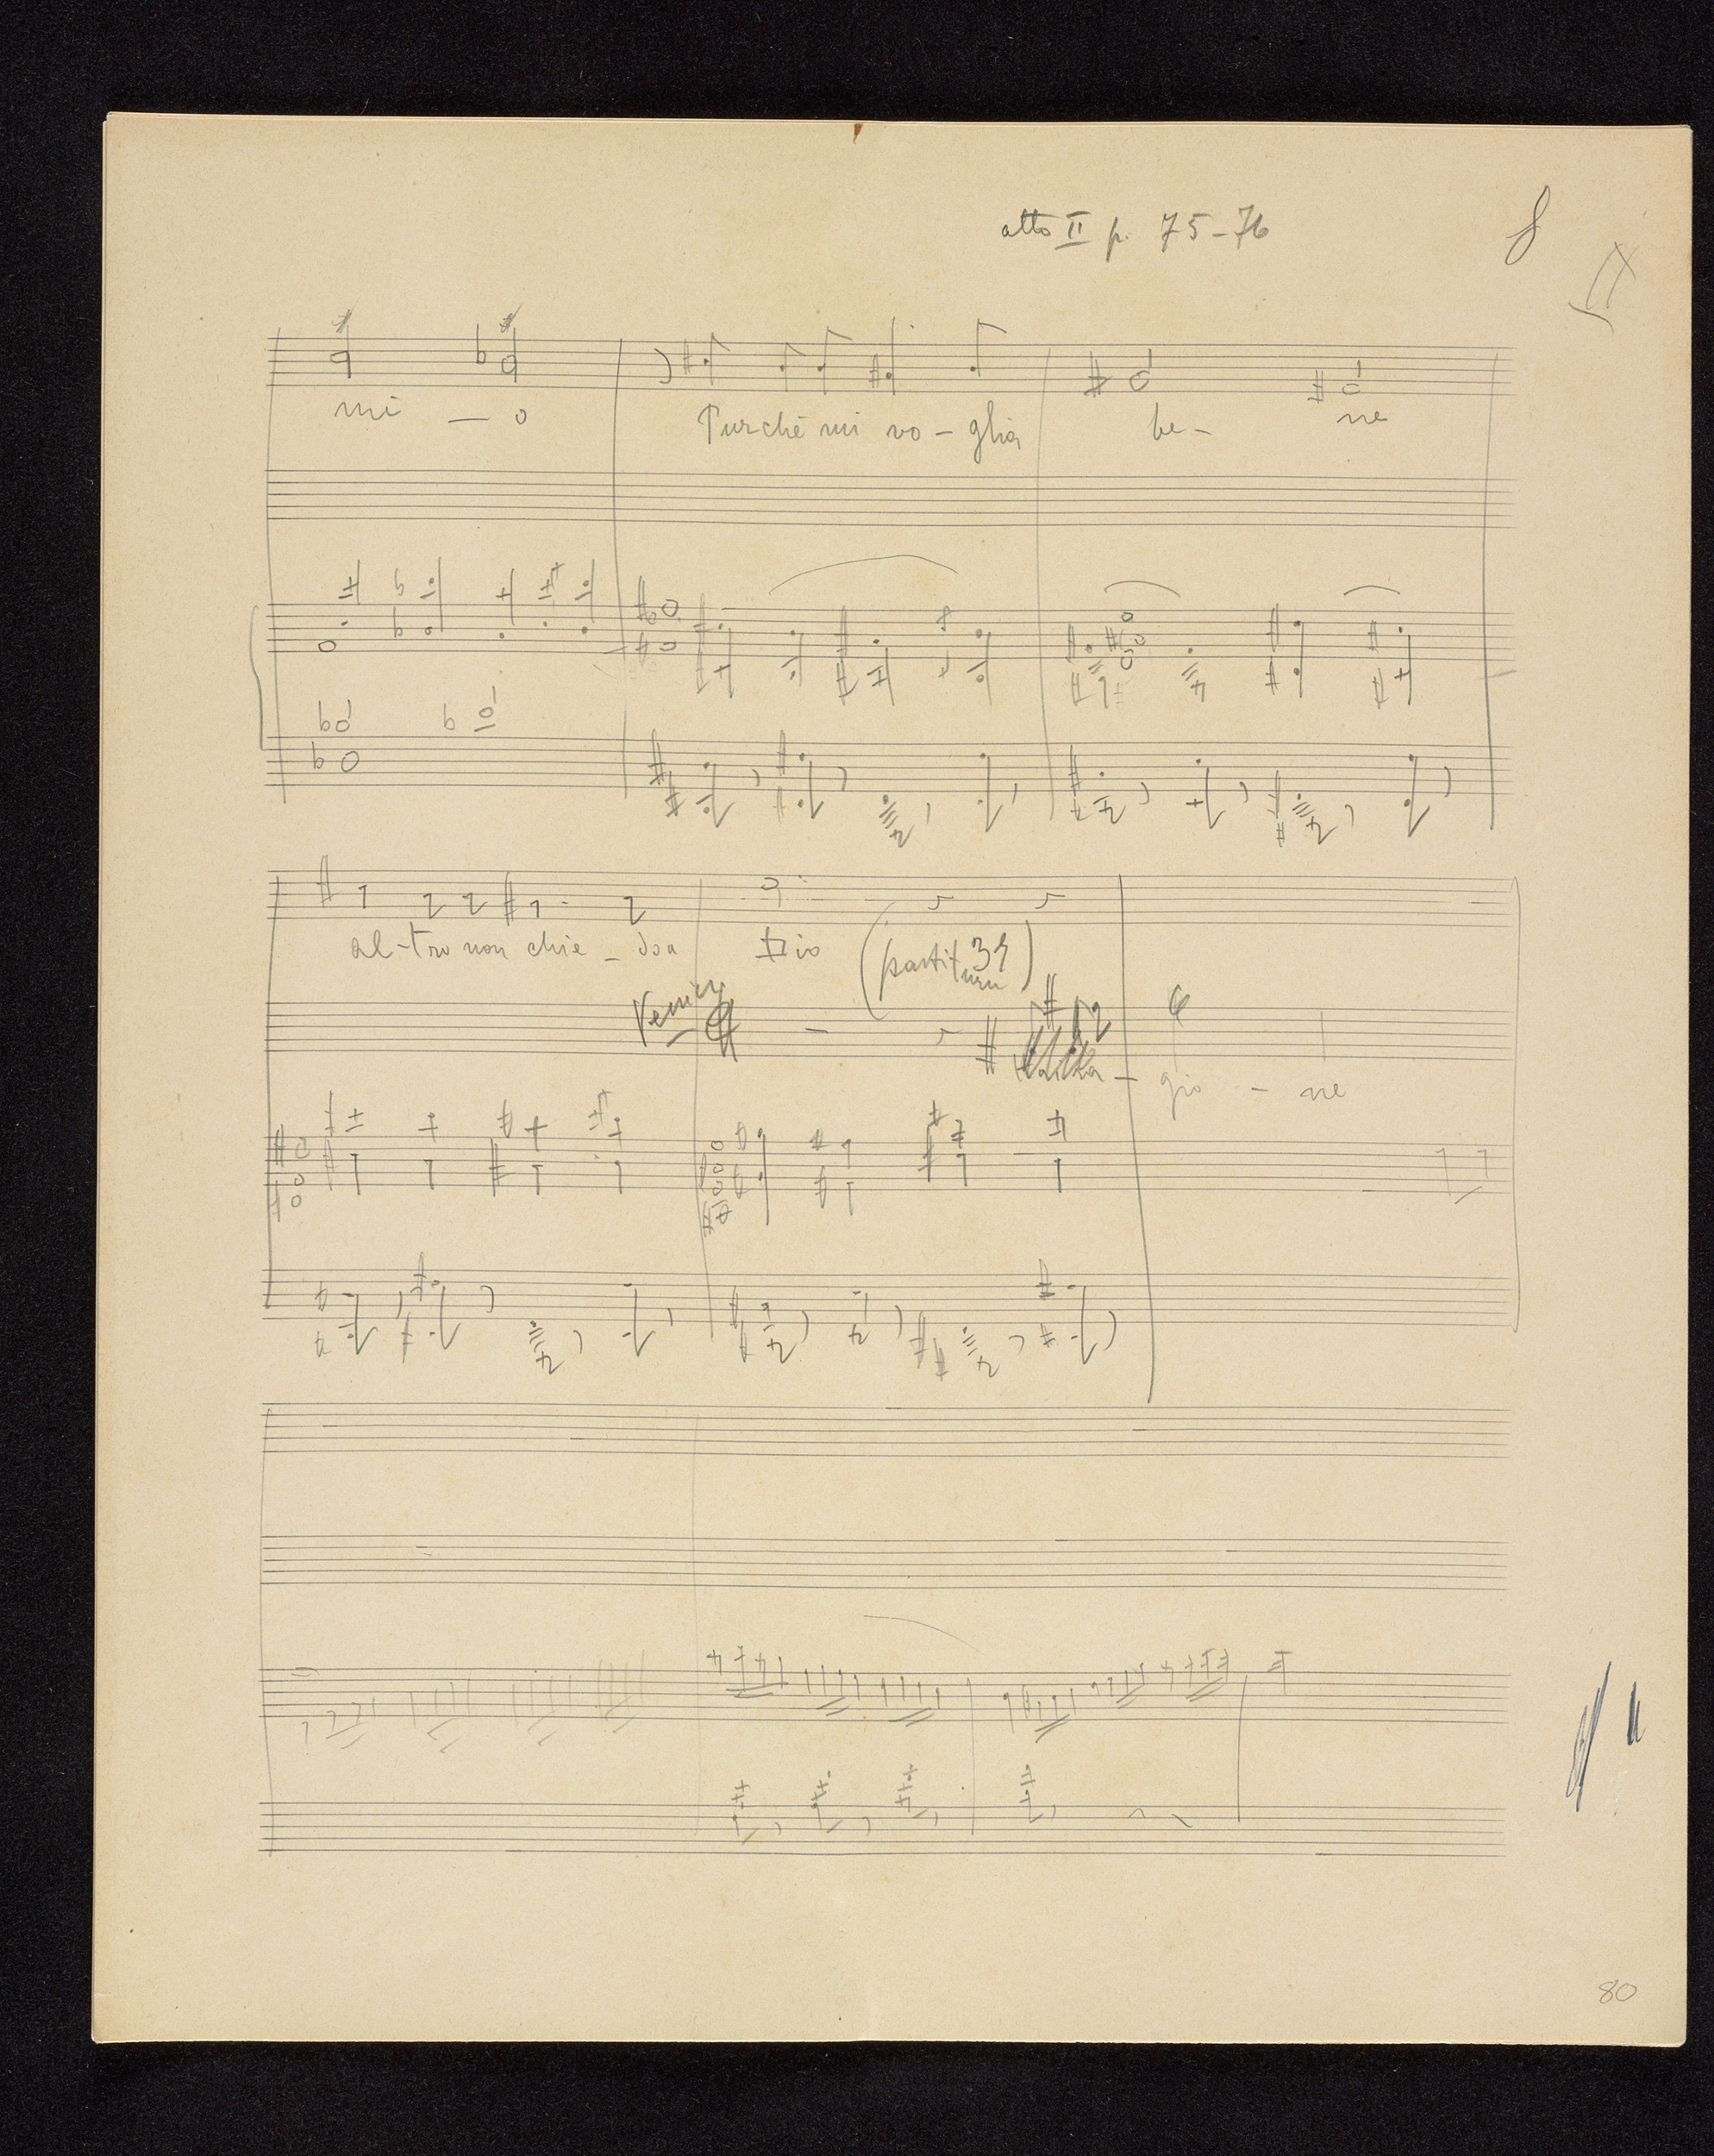 atto II p. 75-76
8
mi - o Purchè mi vo - glia be - ne
al-tro non chie - do a Dio
(partitura 39)
gio - ne
80